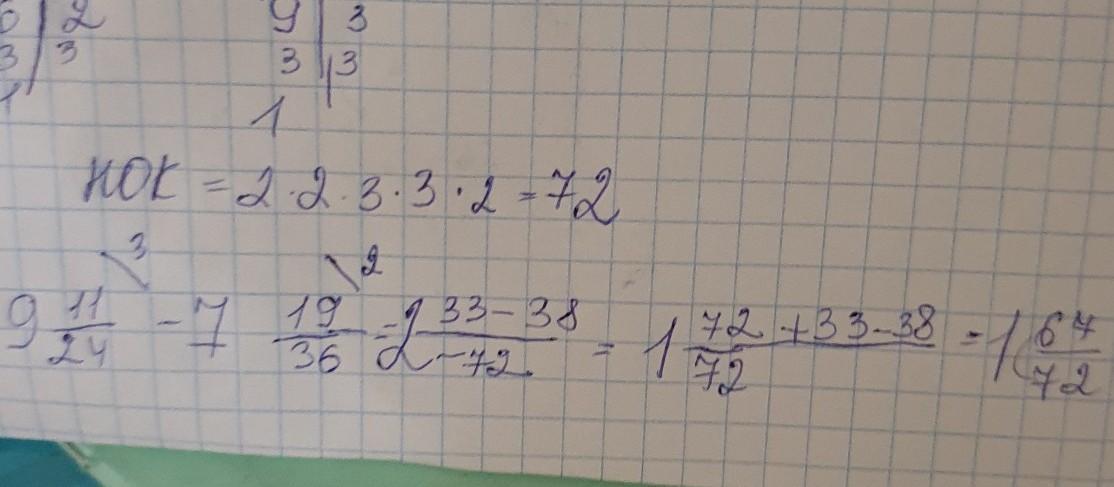 6 | 2 9 | 3
3 | 3 3 | 3
1 1
НОК = 2 · 2 · 3 · 3 · 2 = 72
9 11/24 \3 - 7 19/36 \2 = 2 33-38/72 = 1 72+33-38/72 = 1 67/72